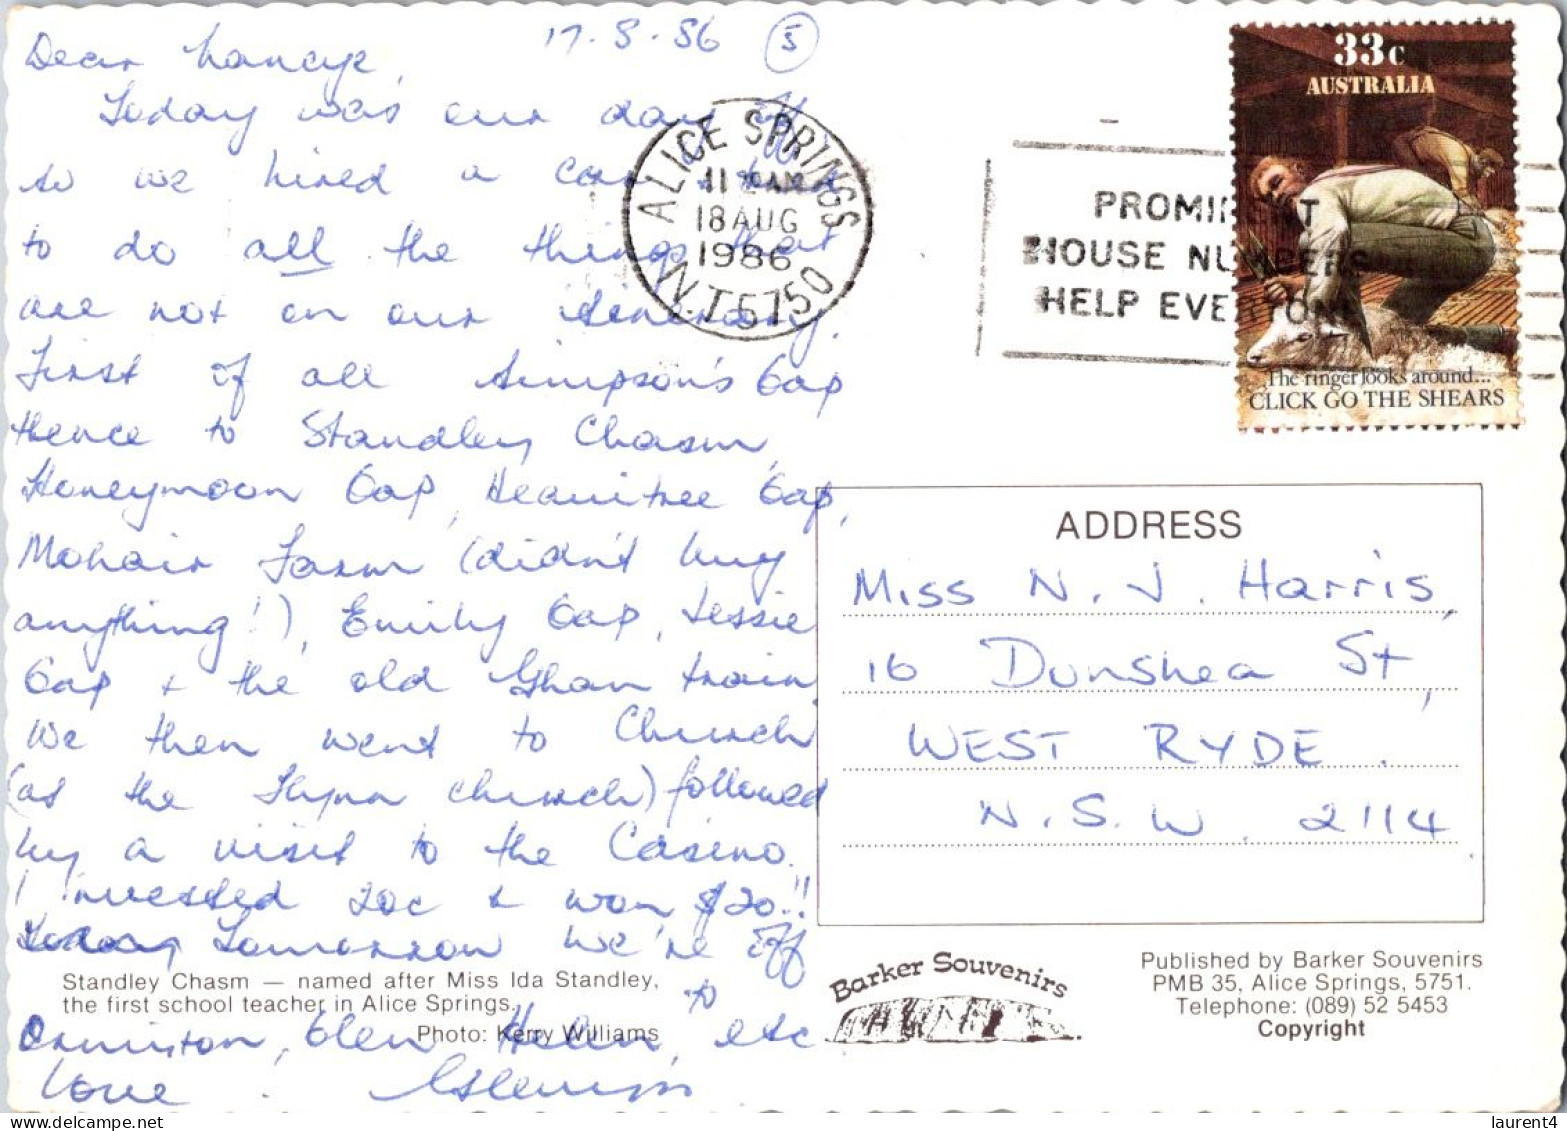 17-8-86 (5)
Dear Nancye,
Today was our day off
so we hired a car & tried
to do all the things that
are not on our itinerary.
First of all Simpson's Gap
thence to Standley Chasm,
Honeymoon Gap, Heavitree Gap,
Mohair Farm (didn't buy
anything!), Emily Gap, Jessie
Gap & the old Ghan train.
We then went to Church
(at the Flynn church) followed
by a visit to the Casino.
I invested 20c & won $20!!
Tomorrow we're off
to
Ormiston, Glen Helen, etc
Love
Standley Chasm — named after Miss Ida Standley,
the first school teacher in Alice Springs.
Photo: Kerry Williams
ALICE SPRINGS
11 AM
18 AUG
1986
N.T. 5750
PROMINENT
HOUSE NUMBERS
HELP EVERYONE
33c
AUSTRALIA
The ringer looks around...
CLICK GO THE SHEARS
ADDRESS
Miss N. J. Harris,
16 Dunshea St,
WEST RYDE.
N.S.W. 2114
Barker Souvenirs
Published by Barker Souvenirs
PMB 35, Alice Springs, 5751.
Telephone: (089) 52 5453
Copyright
laurent4